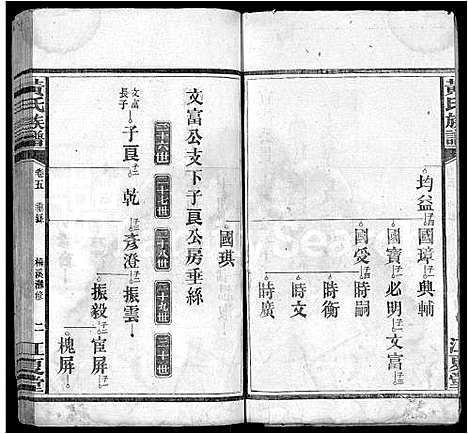 黃氏族譜
江夏堂
均益 國璋 興輔
國寶 必明 文富
國愛 時嗣
時衡
時文
時廣
國琪
文富公支下子良公房垂絲
二十六世 二十七世 二十八世 二十九世 三十世
文富長子 子良 乾 彥澄 振雲
振毅 宦屏
槐屏
黃氏族譜
卷五
垂絲
江夏堂